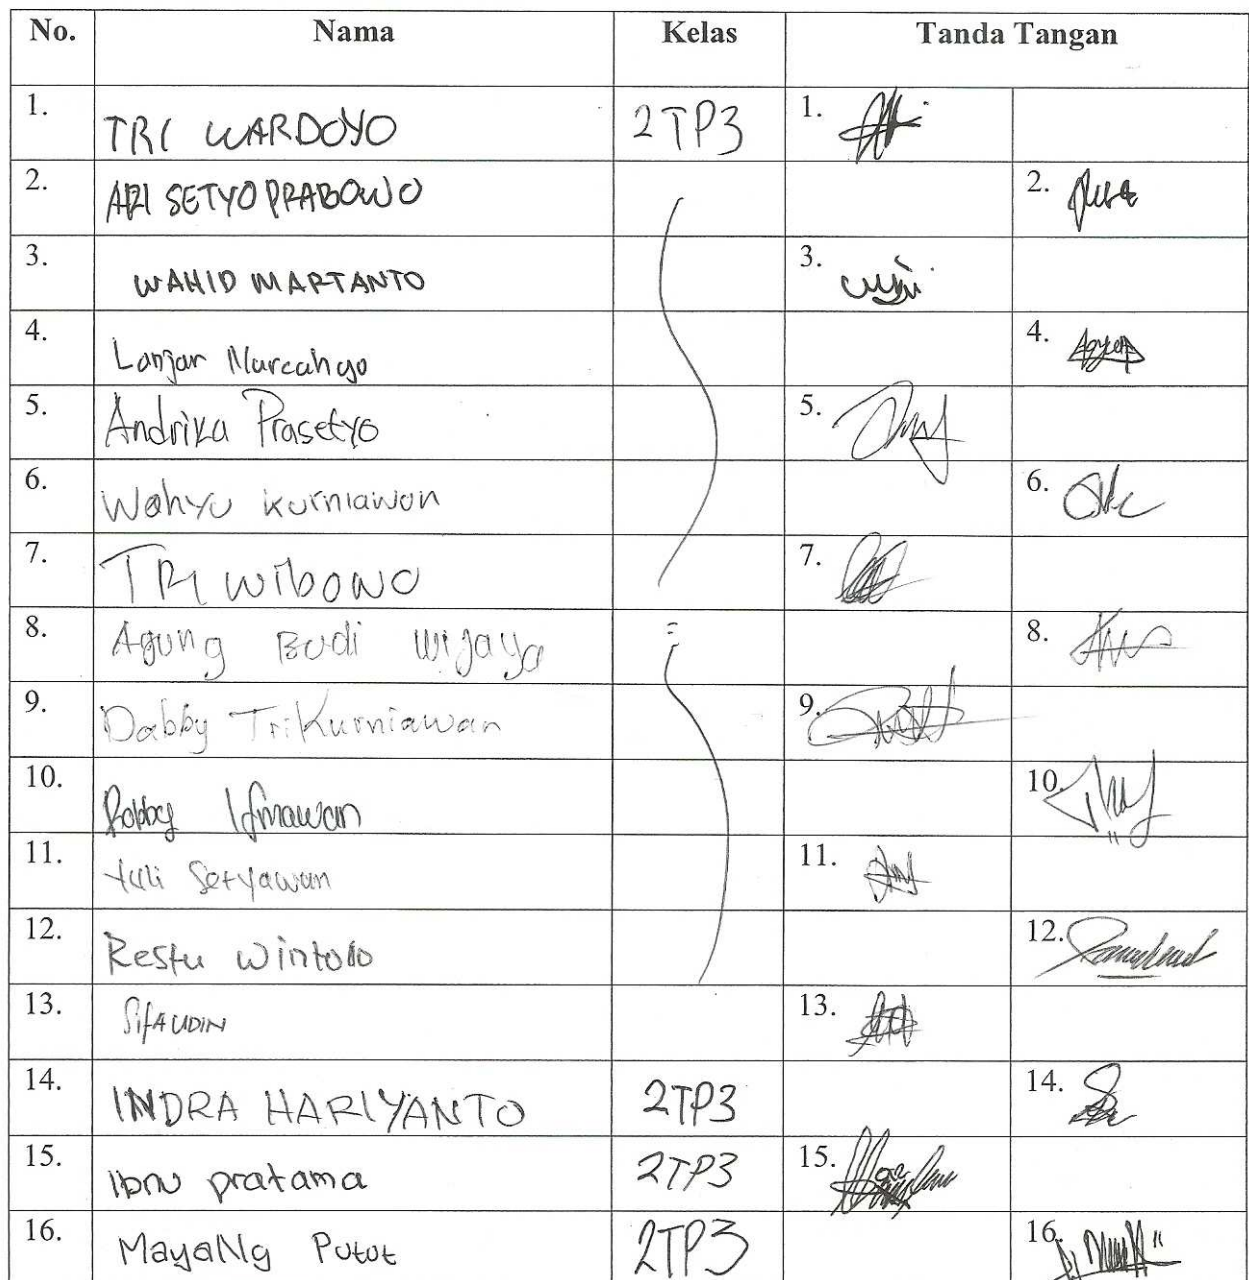 No. Nama Kelas Tanda Tangan
1. TRI WARDOYO 2TP3 1.
2. ARI SETYO PRABOWO 2.
3. WAHID MARTANTO 3.
4. Lanjar Nurcahyo 4.
5. Andrika Prasetyo 5.
6. Wahyu Kurniawan 6.
7. TRI WIbOWO 7.
8. Agung Budi Wijaya 8.
9. Dabby Tri Kurniawan 9.
10. Robby 10.
11. Yuli Setyawan 11.
12. Restu Wintolo 12.
13. SifAUDIN 13.
14. INDRA HARIYANTO 2TP3 14.
15. ibnu pratama 2TP3 15.
16. MayaNg Putut 2TP3 16.